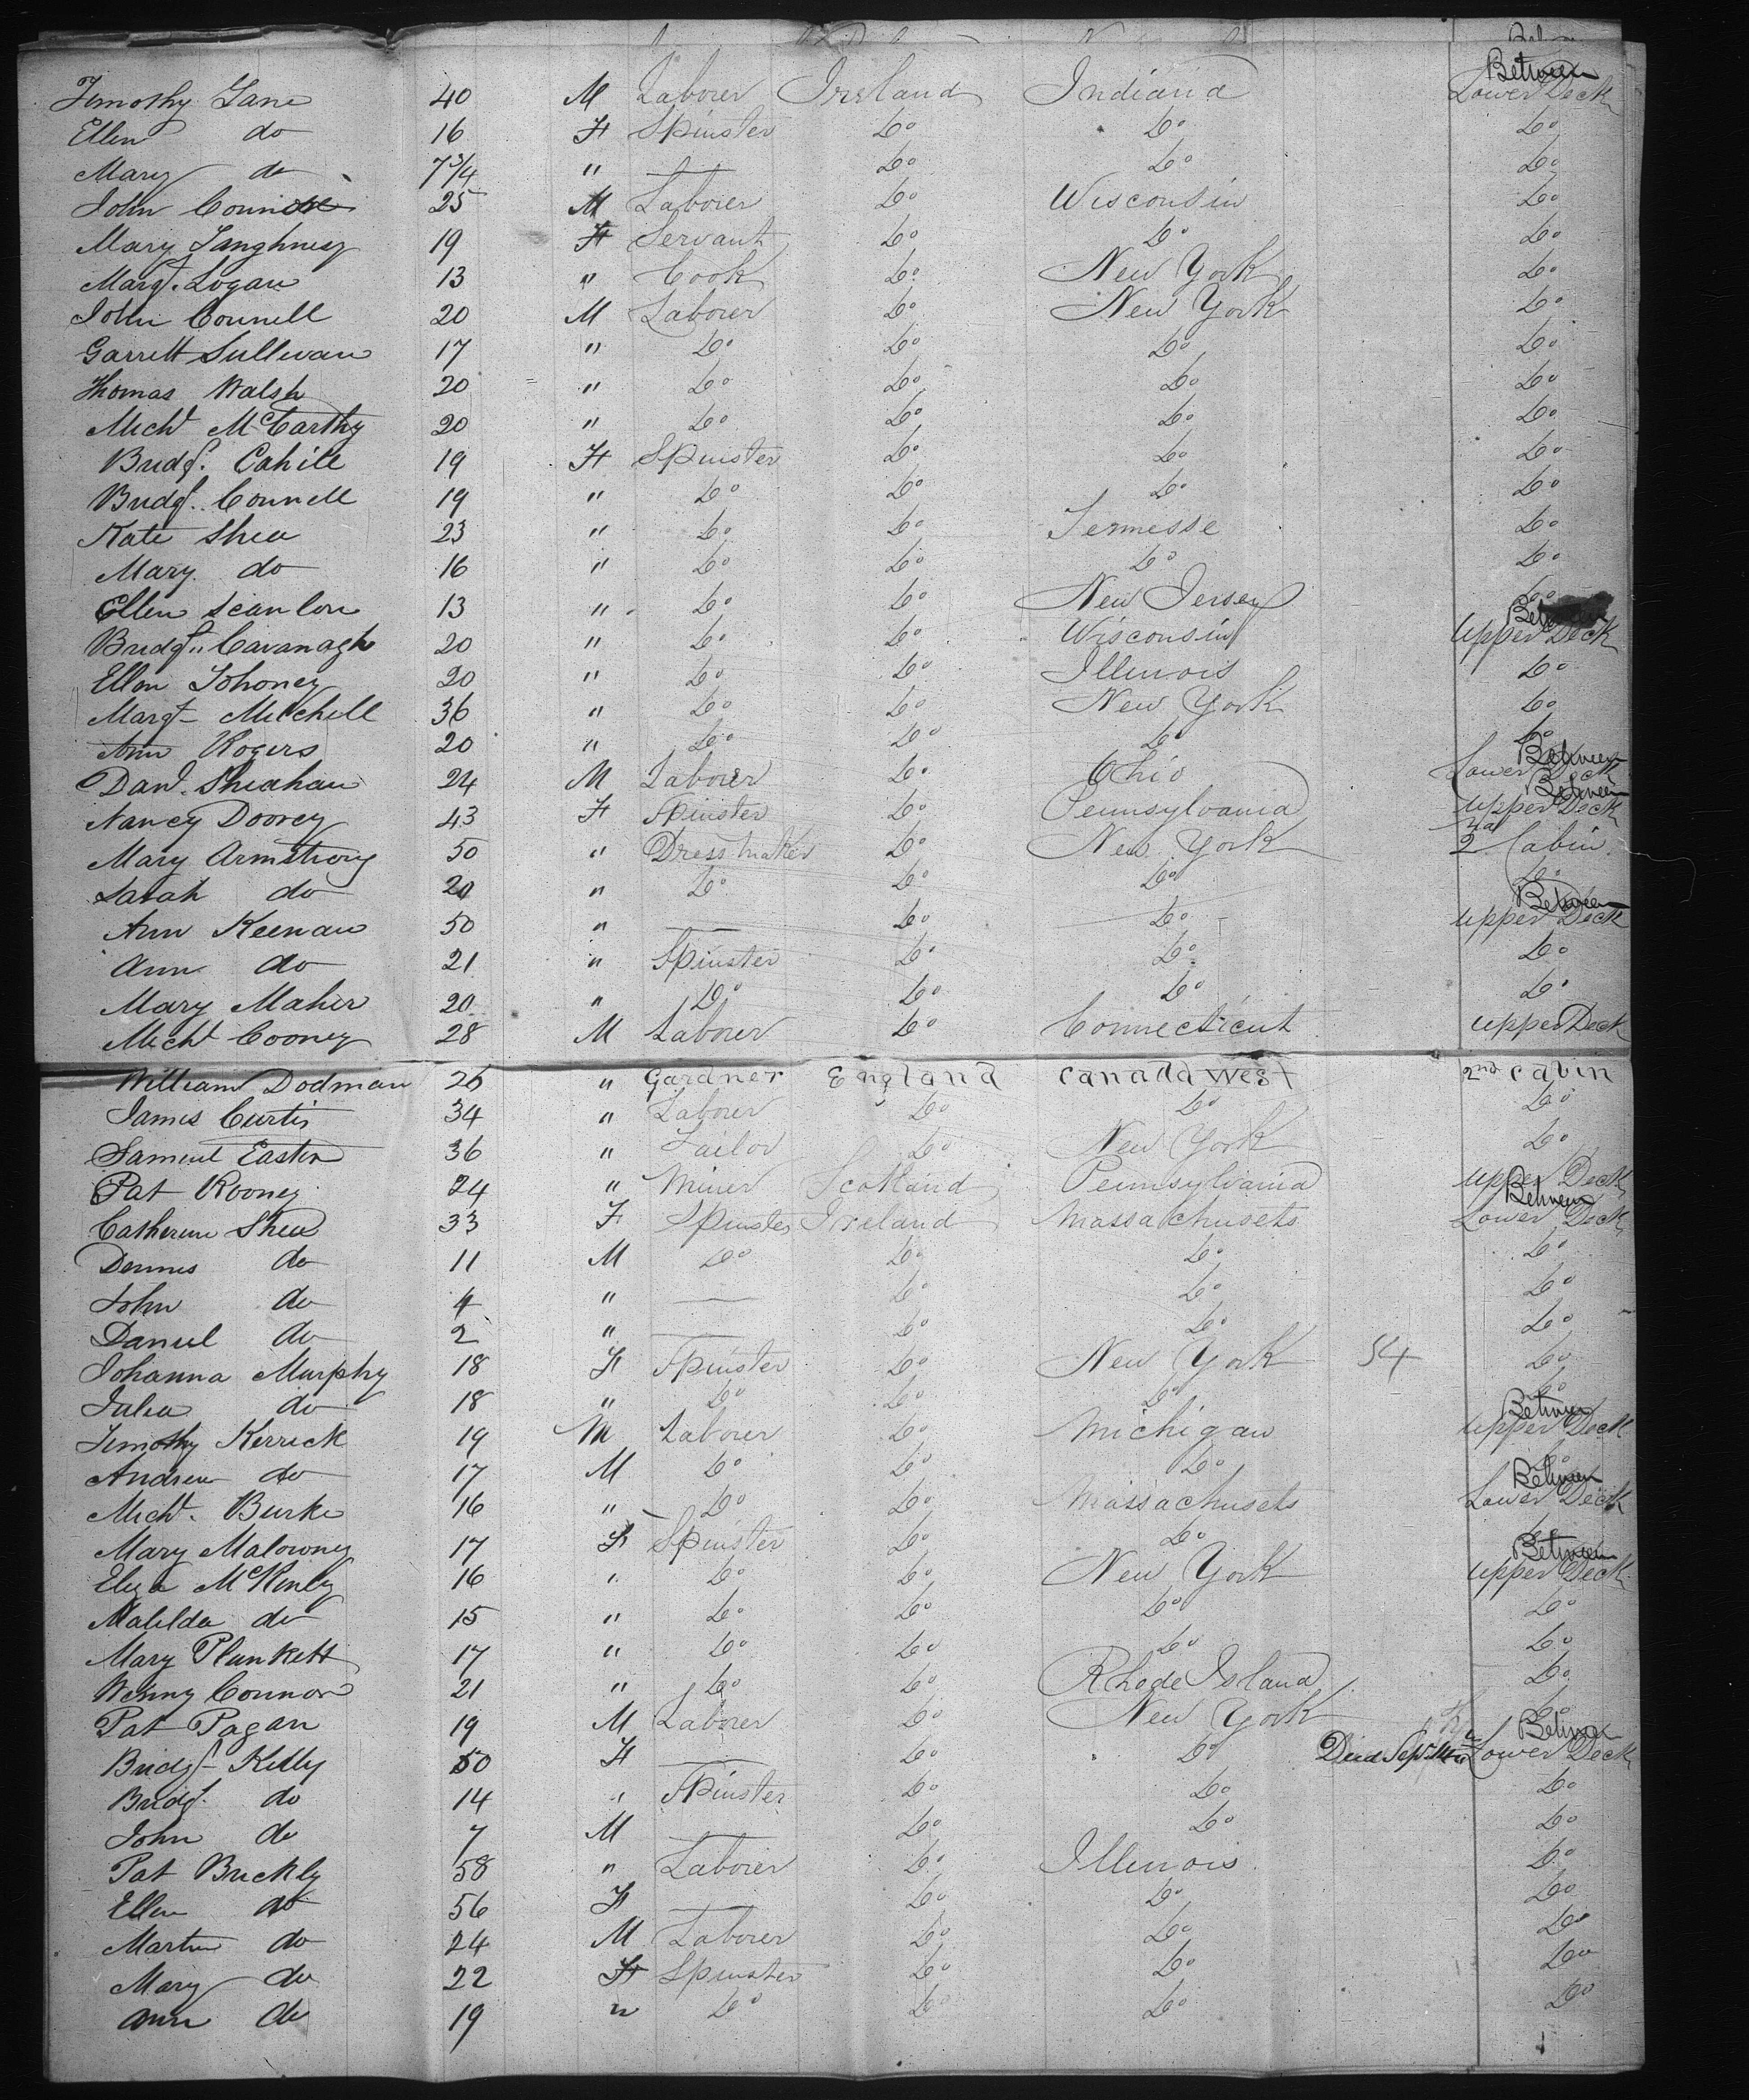 Between
Timothy Lane 40 M Laborer Ireland Indiana Lower Deck
Ellen do 16 F Spinster Do Do Do
Mary do 7 3/4 " — Do Do Do
John 25 M Laborer Do Wisconsin Do
Mary 19 F Servant Do Do Do
Margt. Logan 13 " Cook Do New York Do
John Connell 20 M Laborer Do New York Do
Garrett Sullivan 17 " Do Do Do Do
Thomas Walsh 20 " Do Do Do Do
Michl McCarthy 20 " Do Do Do Do
Bridgt. Cahill 19 F Spinster Do Do Do
Bridgt. Connell 19 " Do Do Do Do
Kate Shea 23 " Do Do Tennesse Do
Mary do 16 " Do Do Do Do
Ellen Scanlon 13 " Do Do New Jersey Do
Bridgt. Cavanagh 20 " Do Do Wisconsin Upper Deck
Ellen 20 " Do Do Illinois Do
Margt Mitchell 36 " Do Do New York Do
Ann Rogers 20 " Do Do Do Do
Between
Danl. Sheahan 24 M Laborer Do Ohio Lower Deck
Between
Nancy Doorey 43 F Spinster Do Pennsylvania Upper Deck
Mary Armstrong 50 " Dress maker Do New York 2nd Cabin
Sarah do 20 " Do Do Do Do
Between
Ann Keenan 50 " — Do Do Upper Deck
Ann do 21 " Spinster Do Do Do
Mary Maher 20 " Do Do Do Do
Michl Cooney 28 M Laborer Do Connecticut Upper Deck
William Dodman 26 " Gardner England Canada West 2nd Cabin
James Curtis 34 " Laborer Do Do Do
Samuel Easton 36 " Tailor Do New York Do
Pat Rooney 24 " Miner Scotland Pennsylvania Upper Deck
Between
Catherine Shea 33 F Spinster Ireland Massachusets Lower Deck
Dennis do 11 M Do Do Do Do
John do 4 " — Do Do Do
Daniel do 2 " — Do Do Do
Johanna Murphy 18 F Spinster Do New York 54 Do
Julia do 18 " Do Do Do Do
Between
Timothy Kerrick 19 M Laborer Do Michigan Upper Deck
Andrew do 17 M Do Do Do Do
Between
Michl. Burke 16 " Do Do Massachusets Lower Deck
Mary Malowney 17 F Spinster Do Do Do
Between
Eliza McKinly 16 " Do Do New York Upper Deck
Matilda do 15 " Do Do Do Do
Mary Plunkett 17 " Do Do Do Do
Winny Connor 21 " Do Do Rhode Island Do
Pat Pagan 19 M Laborer Do New York Do
Between
Bridgt Kelly 50 F — Do Do Died Sept Lower Deck
Bridgt. do 14 " Spinster Do Do Do
John do 7 M — Do Do Do
Pat Buckly 58 " Laborer Do Illinois Do
Ellen do 56 F — Do Do Do
Martin do 24 M Laborer Do Do Do
Mary do 22 F Spinster Do Do Do
Ann do 19 " Do Do Do Do